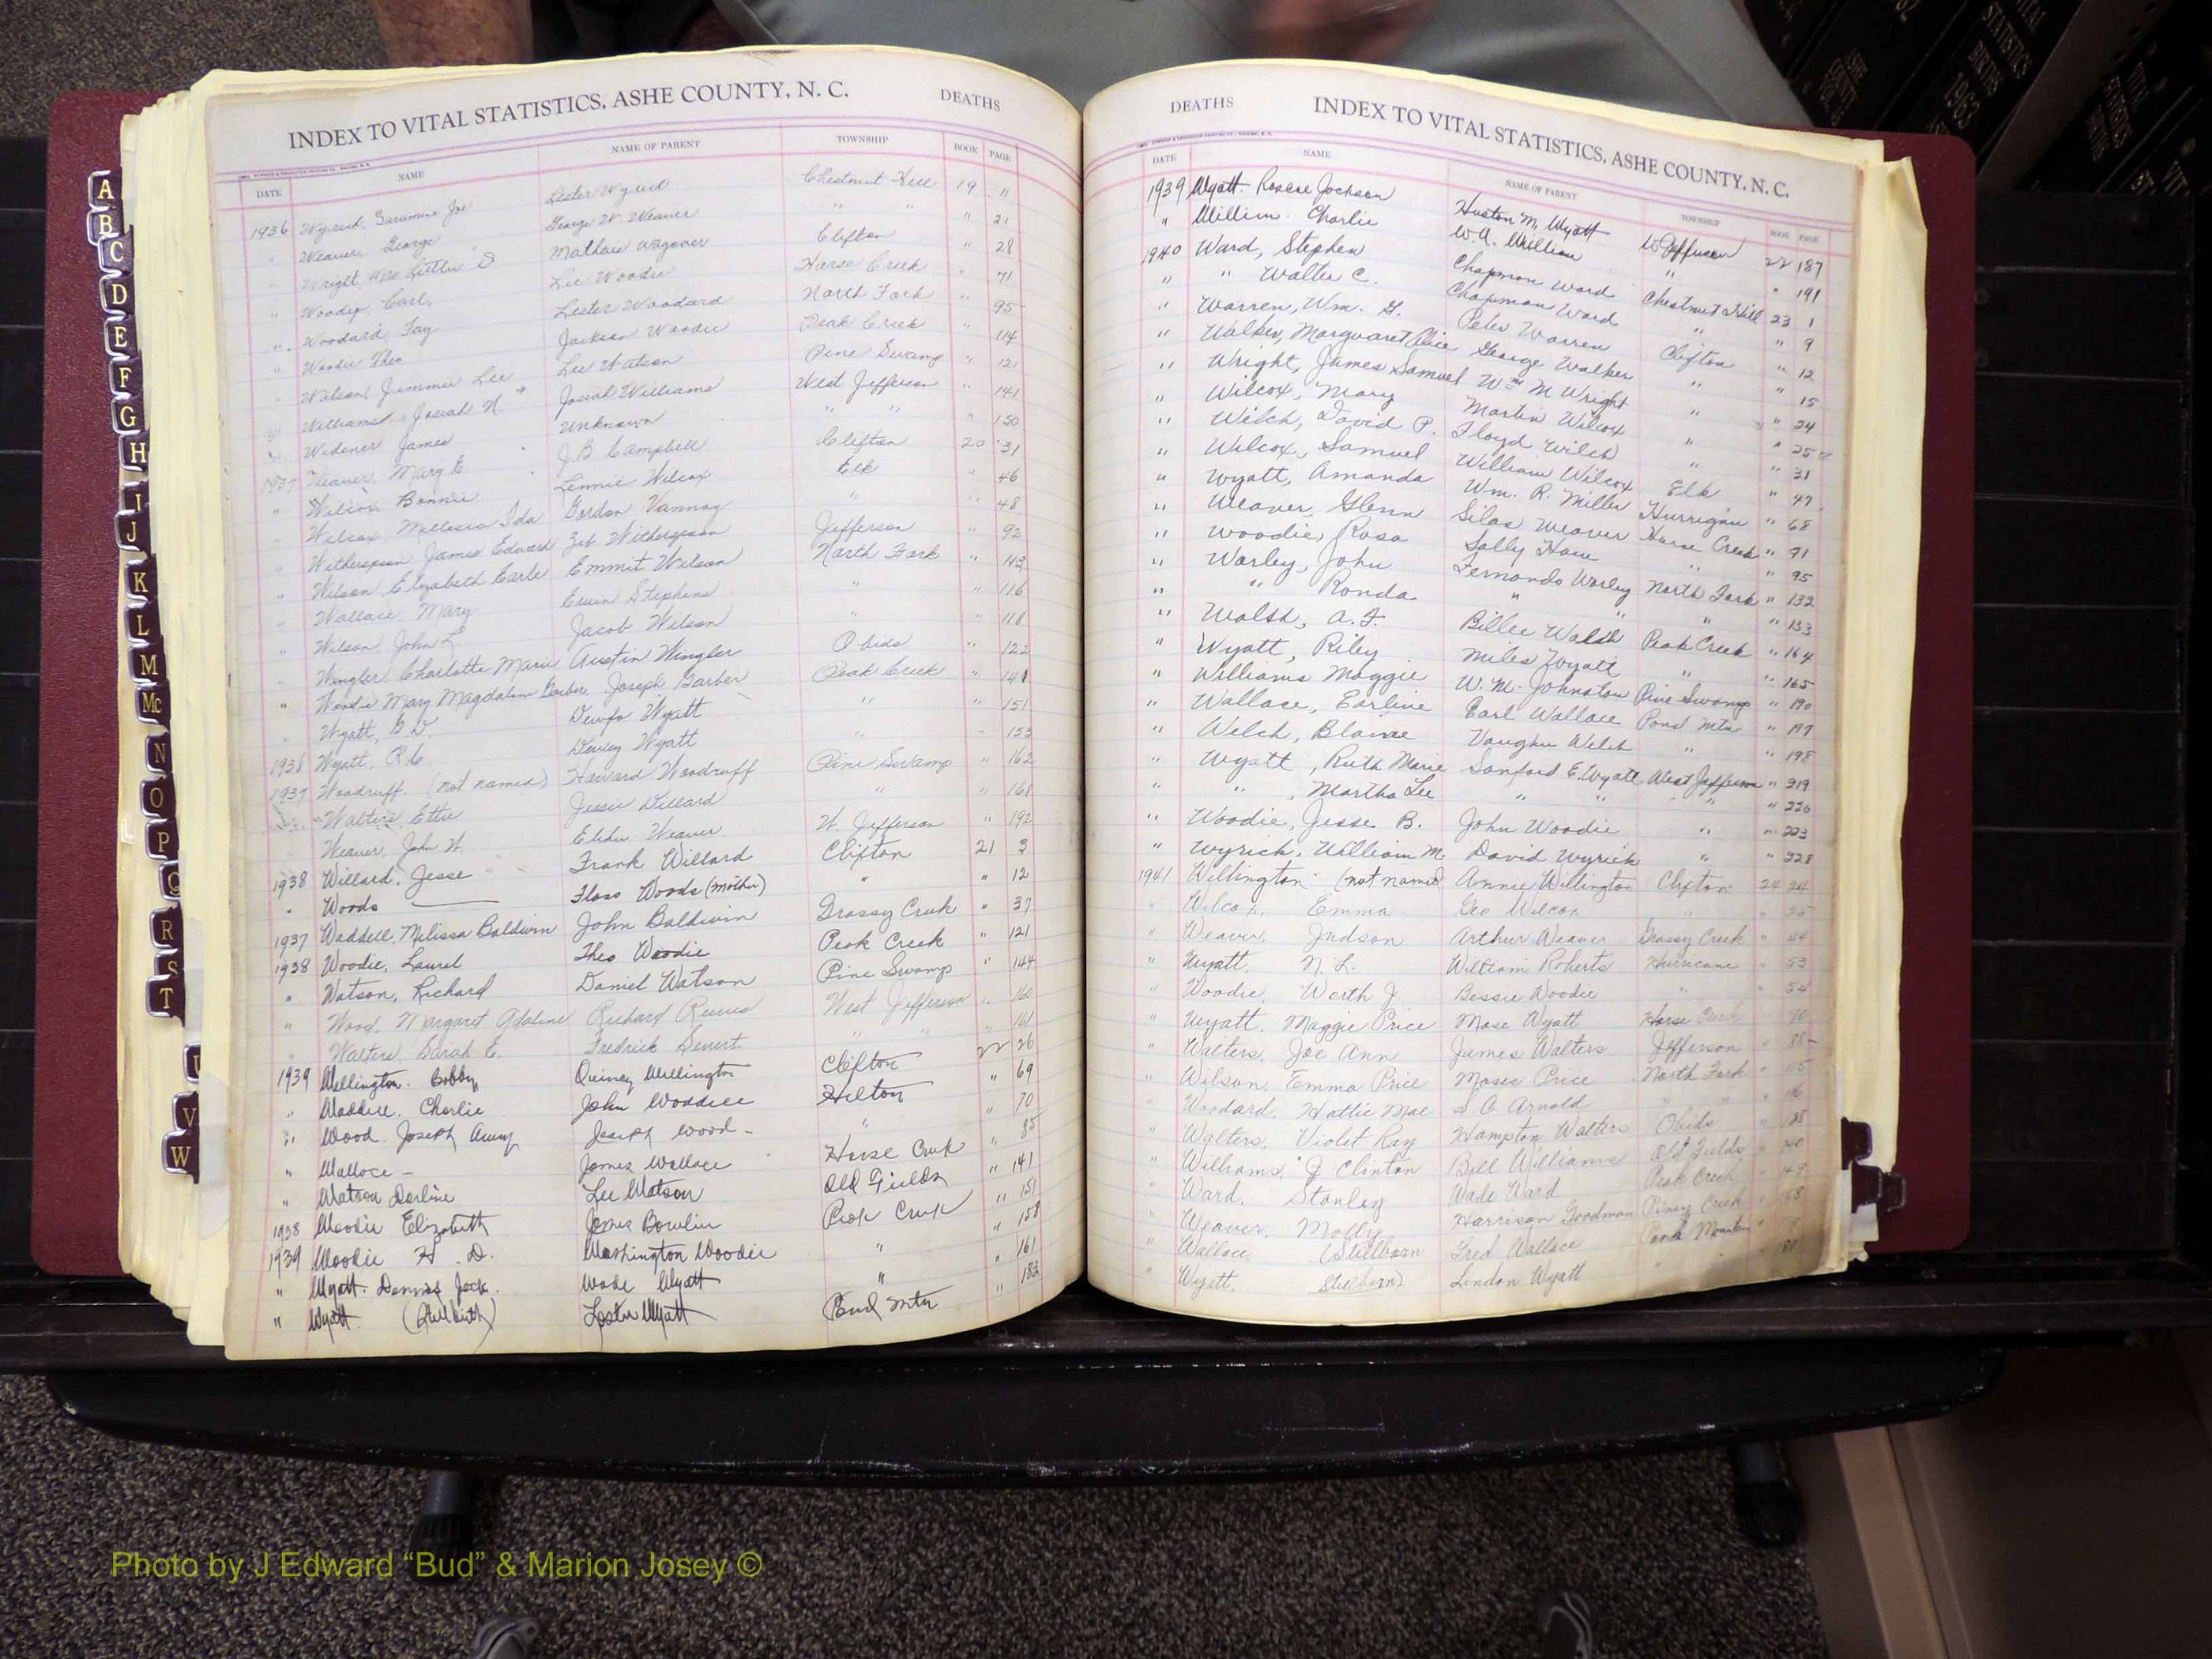 INDEX TO VITAL STATISTICS, ASHE COUNTY, N. C. DEATHS
DATE NAME NAME OF PARENT TOWNSHIP BOOK PAGE
1936 Joe Lester Chestnut Hill 19 11
Weaver, George George W. Weaver " " " 21
Wright, Mrs S Clifton " 28
Woody, Carl, Lee Woodie Horse Creek " 71
Woodard, Fay Lester Woodard North Fork " 95
Woodie Theo Jackson Woodie Peak Creek " 114
Watson, Jimmie Lee Lee Watson Pine Swamp " 121
Williams, Josiah N. Josiah Williams West Jefferson " 141
Widener James Unknown " " " 150
1937 Weaver, Mary E. J.B. Campbell Clifton 20 31
" Wilcox, Bonnie Lennie Wilcox Elk 46
" Wilcox, Ida Gordon Vannoy " " 48
Witherspoon James Edward Witherspoon Jefferson 92
" Wilson, Elizabeth Earle Emmit Wilson North Fork " 113
Wallace, Mary Erwin Stephens " " 116
" Wilson, John L. Jacob Wilson " " 118
Wingler Charlotte Marie Austin Wingler Obids " 122
" Woodie Mary Magdalene Garber Joseph Garber Peak Creek " 141
Wyatt, G.D. Wyatt " " 151
1938 Wyatt, R.C. Dewey Wyatt " " 153
1937 Woodruff. (not named) Howard Woodruff Pine Swamp " 162
Walters, Ettie Jessie Dillard " " 168
Weaver, John W. Elihu Weaver W. Jefferson " 192
1938 Willard, Jesse Frank Willard Clifton 21 3
" Woods —— Floss Woods (mother) " " 12
1937 Waddell, Melissa Baldwin John Baldwin Grassy Creek " 37
1938 Woodie, Laurel Theo Woodie Peak Creek " 121
" Watson, Richard Daniel Watson Pine Swamp " 144
" Wood, Margaret Adaline Richard Reeves West Jefferson " 160
" Walters, Sarah E. Fredrick " " " 161
1939 Wellington. Bobby Quincy Wellington Clifton 22 26
" Waddell. Charlie John Waddell Helton " 69
" Wood. Joseph Joseph Wood - " " 70
" Wallace - James Wallace Horse Creek " 85
" Watson Darline Lee Watson Old Fields " 141
1938 Woodie Elizabeth James Bowlin Peak Creek " 151
1939 Woodie H. D. Washington Woodie " " 158
" Wyatt. Dennis Jack. Wade Wyatt " " 161
" Wyatt. (Stillbirth) Lester Wyatt Pond Mtn " 183
DEATHS INDEX TO VITAL STATISTICS, ASHE COUNTY, N. C.
DATE NAME NAME OF PARENT TOWNSHIP BOOK PAGE
1939 Wyatt. Roscoe Jackson Huston M. Wyatt W Jefferson 22 187
" Charlie W.A. " " 191
1940 Ward, Stephen Chapman Ward Chestnut Hill 23 1
" " Walter C. Chapman Ward " " 9
" Warren, Wm. G. Peter Warren Clifton " 12
" Walker, Marguaret Alice George Walker " " 15
" Wright, James Samuel Wm M Wright " " 24
" Wilcox, Mary Martin Wilcox " " 25
" Welch, David P. Floyd Welch " " 31
" Wilcox, Samuel William Wilcox Elk " 47
" Wyatt, Amanda Wm. R. Miller Hurrigan " 68
" Weaver, Glenn Silas Weaver Horse Creek " 91
" Woodie, Rosa Sally Ham " " 95
" Worley, John Fernando Worley North Fork " 132
" " Ronda " " " " 133
" Walsh, A. F. Billee Walsh Peak Creek " 164
" Wyatt, Riley Miles Wyatt " " 165
" Williams Maggie W. M. Johnston Pine Swamp " 190
" Wallace, Earline Earl Wallace Pond Mtn " 197
" Welch, Blaine Vaughn Welch " " 198
" Wyatt, Ruth Marie Sanford E. Wyatt West Jefferson " 219
" " , Martha Lee " " " " 220
" Woodie, Jesse B. John Woodie " " 223
" Wyrick, William M. David Wyrick " " 228
1941 Willington (not named) Annie Willington Clifton 24 24
" Wilcox, Emma Geo Wilcox " " 25
" Weaver, Judson Arthur Weaver Grassy Creek " 44
" Wyatt, N. L. William Roberts Hurricane " 53
" Woodie, Worth J Bessie Woodie " " 54
" Wyatt. Maggie Price Mose Wyatt Horse Creek " 70
" Walters, Joe Ann James Walters Jefferson " 88
" Wilson, Emma Price Moses Price North Fork " 115
" Woodard, Hattie Mae S. C. Arnold " " "
" Walters, Violet Ray Hampton Walters Obids "
" Williams, J Clinton Bill Williams Old Fields "
" Ward, Stanley Wade Ward Peak Creek "
" Weaver, Molly Harrison Goodman Piney Creek "
" Wallace, (Stillborn Fred Wallace Pond Mountain "
" Wyatt, Stillborn) Lindon Wyatt " "
A
B
C
D
E
F
G
H
I
J
K
L
M
Mc
N
O
P
Q
R
S
T
U
V
W
VITAL STATISTICS BIRTHS 1963
Photo by J Edward “Bud” & Marion Josey ©